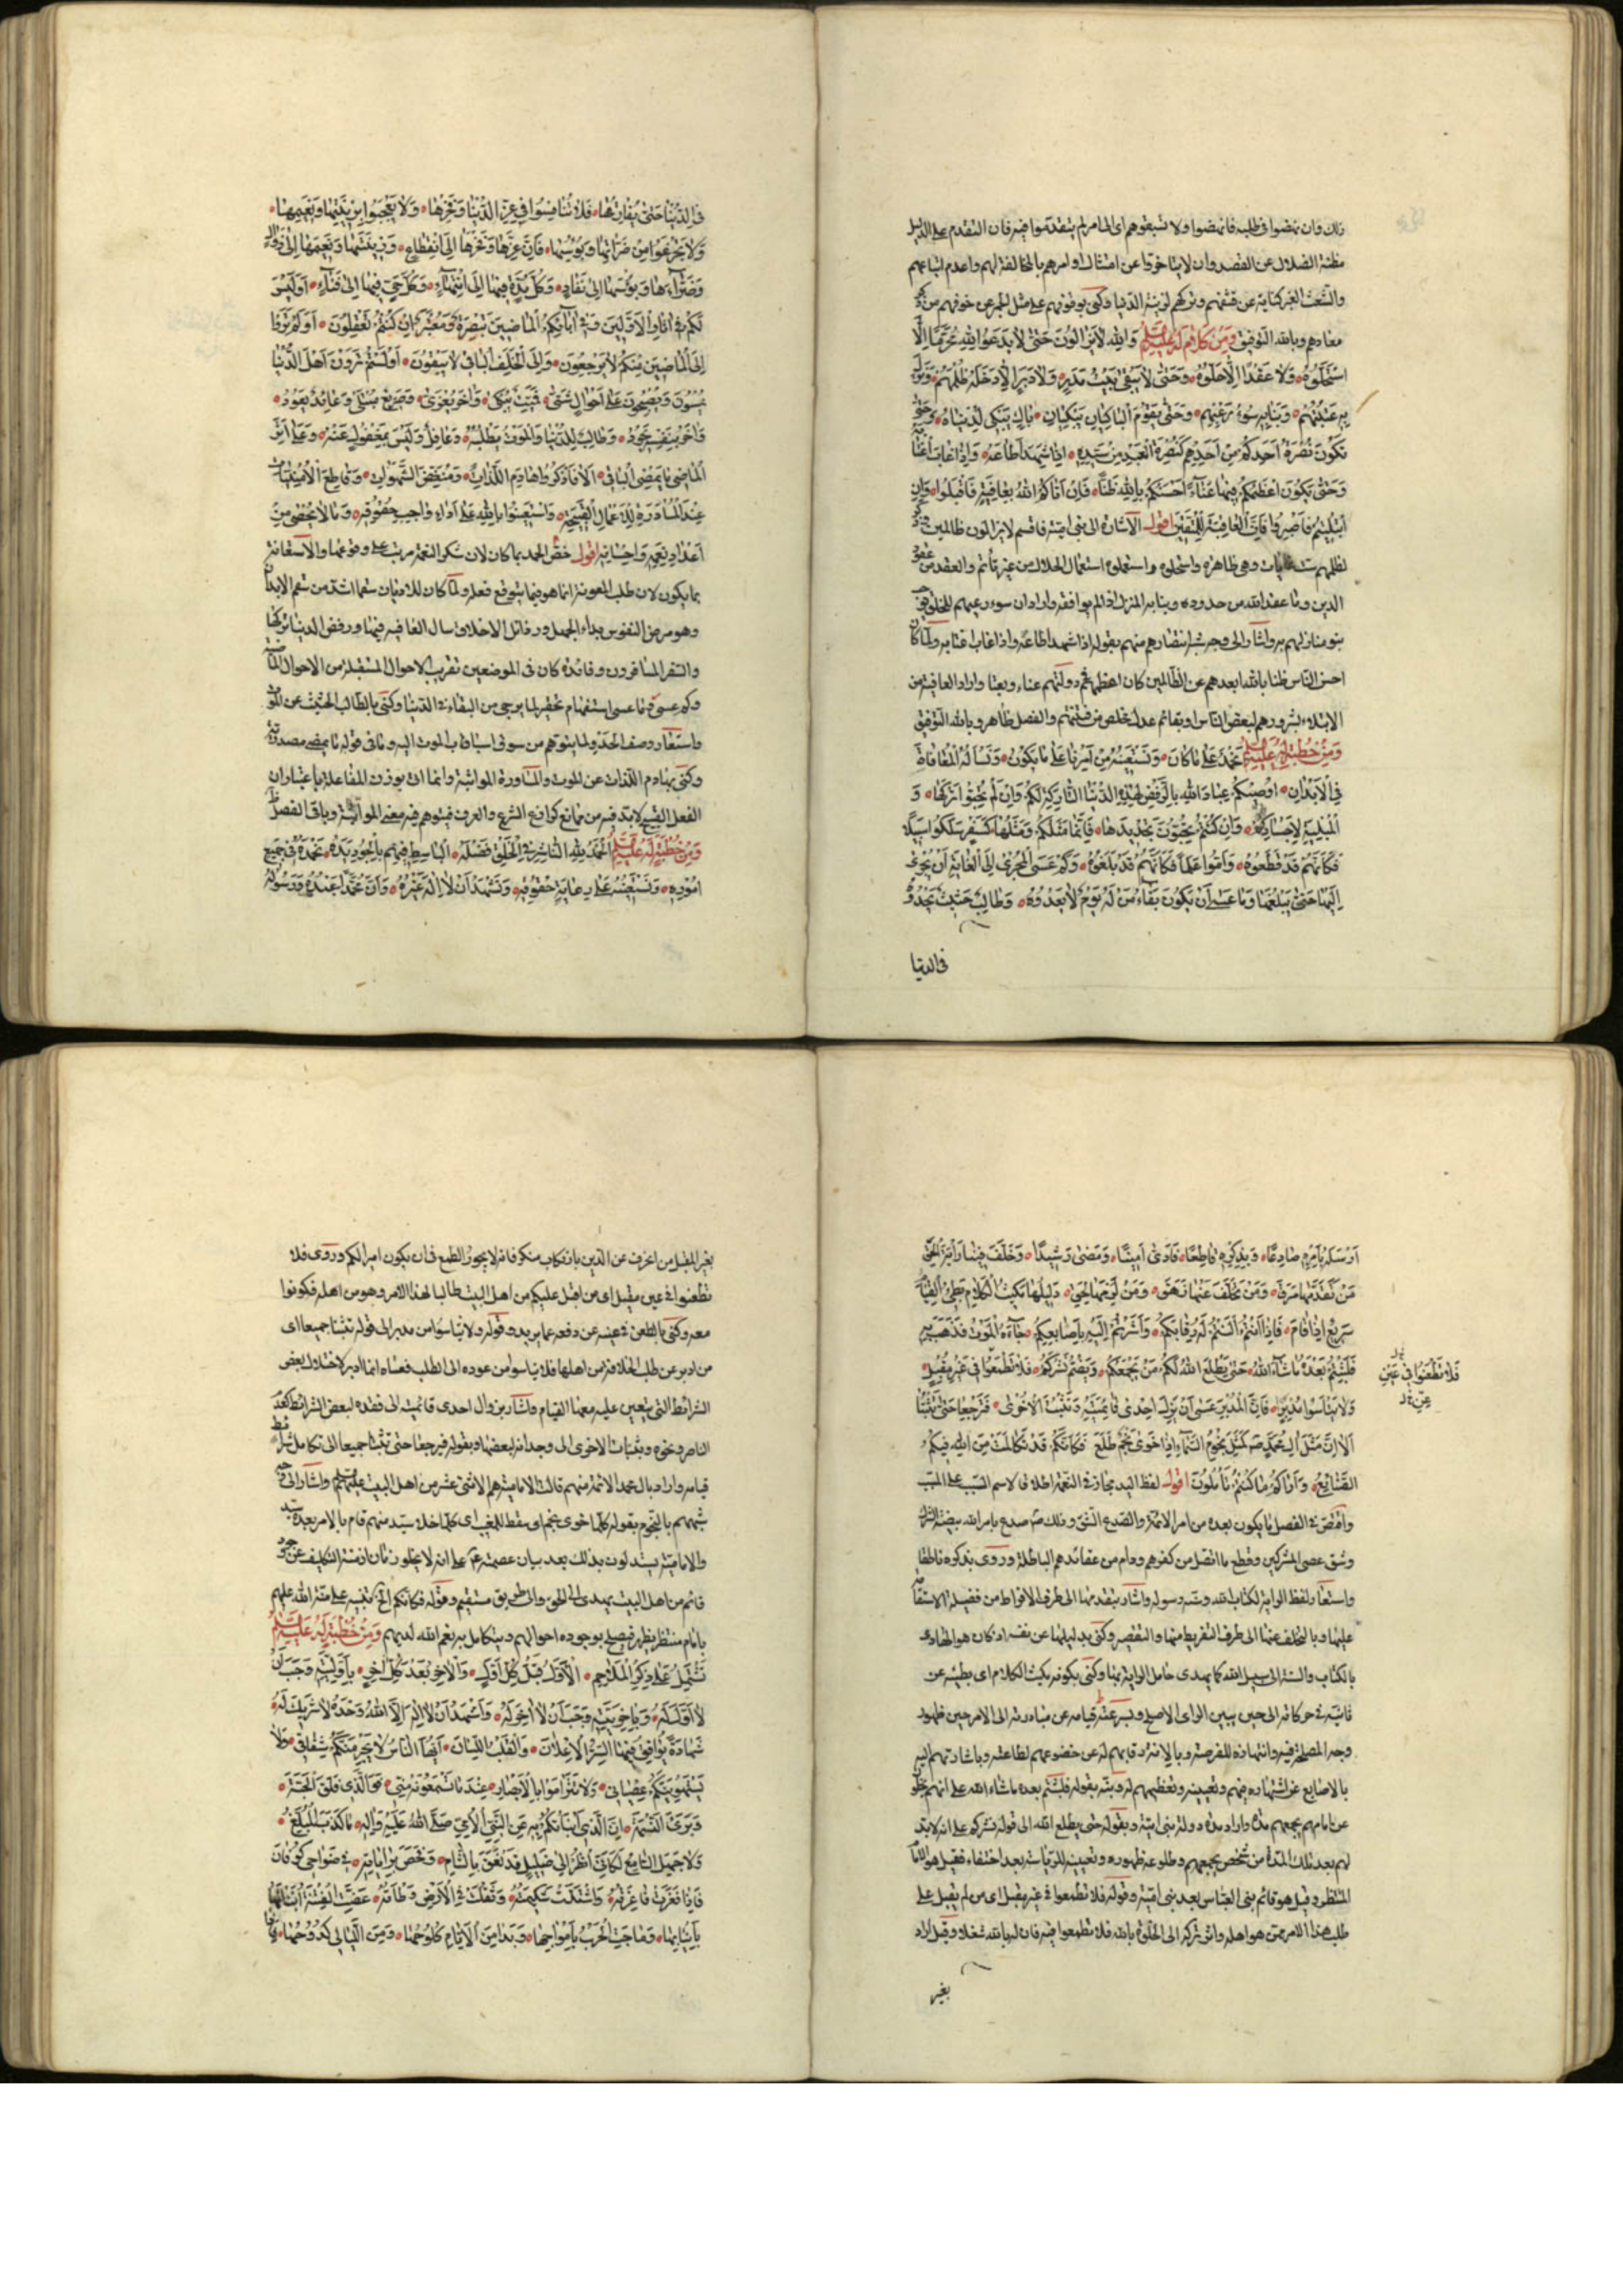 ذلك وان نهضوا فى طلبه فانهضوا ولا تسبقوهم اى الى امر لم يتقدموا فيه فان المتقدم على الدليل
مظنة الضلال عن القصد وان لا يتاخروا عن امتثال اوامرهم بالمخالفة لهم واعدم اتباعهم
والشعث الغبر كناية عن قشفهم وتركهم لزينة الدنيا وكنى بوقوفهم على مثل الجمر عن خوفهم من ذكر
معادهم وبالله التوفيق وَمِن كَلامٍ لَهُ عَلَيهِ السَّلم وَاللهِ لاَيَزالُونَ حَتّى لاَيَدَعُوا لِلّهِ مُحَرَّمًا اِلاَّ
اسْتَحَلُّوهُ وَلاَ عَقْدًا اِلاَّحَلُّوهُ وَحَتّى لاَيَبْقى بَيْتُ مَدَرٍ وَلاَوَبَرٍ اِلاَّدَخَلَهُ ظُلْمُهُمْ وَنَزَلَ
بِهِ عَيْثُهُمْ وَنَبَابِهِ سُوءُ رَعْيِهِمْ وَحَتّى يَقُومَ الْبَاكِيَانِ يَبْكِيَانِ بَاكٍ يَبْكِى لِدِينِهِ وَبَاكٍ يَبْكِى لِدُنْيَاهُ وَحَتّى
تَكُونَ نُصْرَةُ اَحَدِكُمْ مِنْ اَحَدِهِمْ كَنُصْرَةِ الْعَبْدِ مِنْ سَيِّدِهِ اِذَا شَهِدَ اَطَاعَهُ وَاِذَا غَابَ اغْتَابَهُ
وَحَتّى يَكُونَ اَعْظَمَكُمْ فِيهَا عَنَاءً اَحْسَنُكُمْ بِاللهِ ظَنًّا فَاِنْ اَتَاكُمُ اللهُ بِعَافِيَةٍ فَاقْبَلُوا وَاِنِ
ابْتُلِيتُمْ فَاصْبِرُوا فَاِنَّ الْعَاقِبَةَ لِلْمُتَّقِينَ اقول الاشارة الى بنى امية فاقسم لايزالون ظالمين وذكر
لظلمهم غايات وهى ظاهرة واستحلوه واستعملوه استعمال الحلال من غير تأثم والعقد من عقود
الدين وما عقد الله من حدوده ونبا به المنزل اذا لم يوافقه واراد ان سوء رعيهم للخلق
ينبو منازلهم به واشار الى وجه شبه انتصارهم منهم بقوله اذا شهد اطاعه واذا غاب اغتابه ولما كان
احسن الناس ظنا بالله ابعدهم عن الظالمين كان اعظمهم فى دولتهم عناء وبعثا واراد العافية من
الابتلاء بشرورهم لبعض الناس او بقائم عدل يخلص من فتنتهم والفصل ظاهر وبالله التوفيق
وَمِنْ خُطْبَةٍ لَهُ عَلَيهِ السَّلم نَحْمَدُهُ عَلى مَا كَانَ وَنَسْتَعِينُهُ مِنْ اَمْرِنَا عَلى مَا يَكُونُ وَنَسْاَلُهُ الْمُعَافَاةَ
فِى الْاَبْدَانِ اُوصِيكُمْ عِبَادَ اللهِ بِالرَّفْضِ لِهذِهِ الدُّنْيَا التَّارِكَةِ لَكُمْ وَاِنْ لَمْ تُحِبُّوا تَرْكَهَا وَ
الْمُبْلِيَةِ لِاَجْسَادِكُمْ وَاِنْ كُنْتُمْ تُحِبُّونَ تَجْدِيدَهَا فَاِنَّمَا مَثَلُكُمْ وَمَثَلُهَا كَسَفْرٍ سَلَكُوا سَبِيلًا
فَكَاَنَّهُمْ قَدْ قَطَعُوهُ وَاَمُّوا عَلَمًا فَكَاَنَّهُمْ قَدْ بَلَغُوهُ وَكَمْ عَسَى الْمُجْرِى اِلَى الْغَايَةِ اَنْ يَجْرِىَ
اِلَيْهَا حَتّى يَبْلُغَهَا وَمَا عَسى اَنْ يَكُونَ بَقَاءُ مَنْ لَهُ يَوْمٌ لاَيَعْدُوهُ وَطَالِبٌ حَثِيثٌ يَحْدُوهُ
فى الدنيا
فِى الدُّنْيَا حَتّى يُفَارِقَهَا فَلاَ تَنَافَسُوا فِى عِزِّ الدُّنْيَا وَفَخْرِهَا وَلاَ تَعْجَبُوا بِزِينَتِهَا وَنَعِيمِهَا
وَلاَتَجْزَعُوا مِنْ ضَرَّائِهَا وَبُؤْسِهَا فَاِنَّ عِزَّهَا وَفَخْرَهَا اِلَى انْقِطَاعٍ وَزِينَتَهَا وَنَعِيمَهَا اِلى زَوَالٍ
وَضَرَّاءَهَا وَبُؤْسَهَا اِلى نَفَادٍ وَكُلُّ مُدَّةٍ فِيهَا اِلَى انْتِهَاءٍ وَكُلُّ حَىٍّ فِيهَا اِلى فَنَاءٍ اَوَلَيْسَ
لَكُمْ فى اثَارِ الْاَوَّلِينَ وَفى ابَائِكُمُ الْمَاضِينَ تَبْصِرَةٌ وَمُعْتَبَرٌ اِنْ كُنْتُمْ تَعْقِلُونَ اَوَلَمْ تَرَوْا
اِلَى الْمَاضِينَ مِنْكُمْ لاَيَرْجِعُونَ وَاِلَى الْخَلَفِ الْبَاقِى لاَيَبْقُونَ اَوَلَسْتُمْ تَرَوْنَ اَهْلَ الدُّنْيَا
يُمْسُونَ وَيُصْبِحُونَ عَلى اَحْوَالٍ شَتّى فَمَيِّتٌ يُبْكى وَاخَرُ يُعَزّى وَصَرِيعٌ مُبْتَلى وَعَائِدٌ يَعُودُ
وَاخَرُ بِنَفْسِهِ يَجُودُ وَطَالِبٌ لِلدُّنْيَا وَالْمَوْتُ يَطْلُبُهُ وَغَافِلٌ وَلَيْسَ بِمَغْفُولٍ عَنْهُ وَعَلى اَثَرِ
الْمَاضِى مَا يَمْضِى الْبَاقِى اَلاَ فَاذْكُرُوا هَادِمَ اللَّذَّاتِ وَمُنَغِّصَ الشَّهَوَاتِ وَقَاطِعَ الْاُمْنِيَّاتِ
عِنْدَ الْمُسَاوَرَةِ لِلْاَعْمَالِ الْقَبِيحَةِ وَاسْتَعِينُوا بِاللهِ عَلى اَدَاءِ وَاجِبِ حَقِّهِ وَمَا لاَيُحْصى مِنْ
اَعْدَادِ نِعَمِهِ وَاِحْسَانِهِ اقول خص الحمد بما كان لان شكر النعمة مرتب على وقوعها والاستعانة
بما يكون لان طلب المعونة انما هو فيما يتوقع فعله ولما كان للاديان سقما اشد من سقم الابدان
وهو مرض النفوس بداء الجهل ورذائل الاخلاق سال العافيه فيها ورفض الدنيا تركها
والسفر المسافرون وفائدة كان فى الموضعين تقريب الاحوال المستقبلة من الاحوال الماضية
وكم عسى وما عسى استفهام تحقير لما يرجى من البقاء فى الدنيا وكنى بالطالب الحثيث عن الموت
واستعار وصف الحدو لما يتوهم من سوق اسباب الموت اليه وما فى قوله ما يمضى مصدرية
وكنى بهادم اللذات عن الموت والمساورة المواثبة وانما اتى بوزن المفاعلة باعتبار ان
الفعل القبيح لابد فيه من ممانع كوازع الشرع والعرف فيتوهم فيه معنى المواثبة وباقى الفصل ظاهر
وَمِنْ خُطْبَةٍ لَهُ عَلَيهِ السَّلم اَلْحَمْدُ لِلّهِ النَّاشِرِ فى الْخَلْقِ فَضْلَهُ الْبَاسِطِ فِيهِمْ بِالْجُودِ يَدَهُ نَحْمَدُهُ فى جَمِيعِ
اُمُورِهِ وَنَسْتَعِينُهُ عَلى رِعَايَةِ حُقُوقِهِ وَنَشْهَدُ اَنْ لاَاِلهَ غَيْرُهُ وَاَنَّ مُحَمَّدًا عَبْدُهُ وَرَسُولُهُ
اَرْسَلَهُ بِاَمْرِهِ صَادِعًا وَبِذِكْرِهِ قَاطِعًا فَاَدّى اَمِينًا وَمَضى رَشِيدًا وَخَلَّفَ فِينَا رَايَةَ الْحَقِّ
مَنْ تَقَدَّمَهَا مَرَقَ وَمَنْ تَخَلَّفَ عَنْهَا زَهَقَ وَمَنْ لَزِمَهَا لَحِقَ دَلِيلُهَا مَكِيثُ الْكَلاَمِ بَطِئُ الْقِيَامِ
سَرِيعٌ اِذَا قَامَ فَاِذَا اَنْتُمْ اَلَنْتُمْ لَهُ رِقَابَكُمْ وَاَشَرْتُمْ اِلَيْهِ بِاَصَابِعِكُمْ جَاءَهُ الْمَوْتُ فَذَهَبَ بِهِ
فَلَبِثْتُمْ بَعْدَهُ مَا شَاءَ اللهُ حَتّى يُطْلِعَ اللهُ لَكُمْ مَنْ يَجْمَعُكُمْ وَيَضُمُّ نَشْرَكُمْ فَلاَ تَطْمَعُوا فى غَيْرِ مُقْبِلٍ
فَلاَ تَطْعَنُوا فِى عَيْنِ
وَلاَتَيْاَسُوا مِنْ مُدْبِرٍ فَاِنَّ الْمُدْبِرَ عَسى اَنْ تَزِلَّ اِحْدى قَائِمَتَيْهِ وَتَثْبُتَ الْاُخْرى فَتَرْجِعَا حَتّى تَثْبُتَا
اَلاَ اِنَّ مَثَلَ الِ مُحَمَّدٍ ص كَمَثَلِ نُجُومِ السَّمَاءِ اِذَا خَوى نَجْمٌ طَلَعَ نَجْمٌ فَكَاَنَّكُمْ قَدْ تَكَامَلَتْ مِنَ اللهِ فِيكُمُ
الصَّنَائِعُ وَاَرَاكُمْ مَا كُنْتُمْ تَاْمُلُونَ اقول لفظ اليد مجاز فى النعمة اطلاقا لاسم السبب على المسبب
واقتص فى الفصل ما يكون بعده من امر الائمة والصدع الشق وذلك ص صدع بامر الله بيضة الشرك
وشق عصى المشركين وقطع ما اتصل من كفرهم ودام من عقائدهم الباطلة وروى بذكره ناطقا
واستعار لفظ الراية لكتاب الله وسنة رسوله واشار بتقدمها الى طرف الافراط من فضيلة الاستقامة
عليها وبالتخلف عنها الى طرف التفريط منها والتقصير وكنى بدليلها عن نفسه اذ كان هو الهادى
بالكتاب والسنة الى سبيل الله كما يهدى حامل الراية بها وكنى بكونه مكيث الكلام اى بطيئه عن
تانيه فى حركاته الى حين يبين الراى الاصلح وبسرعته قيامه عن مبادرته الى الامر حين ظهور
وجه المصلحة فيه وانتهازه للفرصة وبالانة رقابهم له عن خضوعهم لطاعته وباشارتهم اليه
بالاصابع عن اشتهاره فيهم وتعيينه وتعظيمهم له ونبه بقوله فلبثتم بعده ما شاء الله على انهم يخلون
عن امام يجمعهم مدة واراد مدة دولة بنى امية وبقوله حتى يطلع الله الى قوله نشركم على انه لابد
لهم بعد تلك المدة من شخص يجمعهم وطلوعه ظهوره وتعيينه للرياسة بعد اختفاء فقيل هو الامام
المنتظر وقيل هو قائم بنى العباس بعد بنى امية وقوله فلا تطمعوا فى غير مقبل اى من لم يقبل على
طلب هذا الامر ممن هو اهله واثر تركه الى الخلوة بالله فلا تطمعوا فيه فان له بالله شغلا وقيل اراد
بغير
بغير المقبل من انحرف عن الدين بارتكاب منكر فانه لايجوز الطمع فى ان يكون اميرا لكم وروى فلا
تطعنوا فى عين مقبل اى من اقبل عليكم من اهل البيت طالبا لهذا الامر وهو من اهله فكونوا
معه وكنى بالطعن فى عينه عن دفعه عما يريد وقوله ولا تياسوا من مدبر الى قوله تثبتا جميعا اى
من ادبر عن طلب الخلافة من اهلها فلا تياسوا من عوده الى الطلب فعساه انما ادبر لاختلال بعض
الشرائط التى يتعين عليه معها القيام واشار بزوال احدى قائمتيه الى فقده لبعض الشرائط كعدم
الناصر ونحوه وبثبات الاخرى الى وجدانه لبعضها وبقوله فترجعا حتى تثبتا جميعا الى تكامل شرائط
قيامه واراد بال محمد الائمة منهم قالت الامامية هم الاثنى عشر من اهل البيت عليهم السلم واشار الى وجه
شبههم بالنجوم بقوله كلما خوى نجم اى سقط للمغيب اى كلما خلا سيد منهم قام بالامر بعده سيد
والامامية يستدلون بذلك بعد بيان عصمته ع على انه لايخلو زمان ازمنة التكليف عن وجود
قائم من اهل البيت يهدى الى الحق والى طريق مستقيم وقوله فكانكم الخ تنبيه على منة الله عليهم
بامام منتظر يظهر فيصلح بوجوده احوالهم ويتكامل به نعم الله لديهم وَمِنْ خُطْبَةٍ لَهُ عَلَيهِ السَّلم
تَشْتَمِلُ عَلى ذِكْرِ الْمَلاَحِمِ اَلْاَوَّلُ قَبْلَ كُلِّ اَوَّلٍ وَالْاخِرُ بَعْدَ كُلِّ اخِرٍ بِاَوَّلِيَّتِهِ وَجَبَ اَنْ
لاَ اَوَّلَ لَهُ وَبِاخِرِيَّتِهِ وَجَبَ اَنْ لاَاخِرَ لَهُ وَاَشْهَدُ اَنْ لاَاِلهَ اِلاَّ اللهُ وَحْدَهُ لاَشَرِيكَ لَهُ
شَهَادَةً يُوَافِقُ فِيهَا السِّرُّ الْاِعْلاَنَ وَالْقَلْبُ اللِّسَانَ اَيُّهَا النَّاسُ لاَيَجْرِمَنَّكُمْ شِقَاقِى وَلاَ
يَسْتَهْوِيَنَّكُمْ عِصْيَانِى وَلاَ تَتَرَامَوْا بِالْاَبْصَارِ عِنْدَ مَا تَسْمَعُونَهُ مِنِّى فَوَالَّذِى فَلَقَ الْحَبَّةَ
وَبَرَئَ النَّسَمَةَ اِنَّ الَّذِى اُنَبِّئُكُمْ بِهِ عَنِ النَّبِىِّ الْاُمِّىِّ صَلَّى اللهُ عَلَيْهِ وَالِهِ مَا كَذَبَ الْمُبَلِّغُ
وَلاَ جَهِلَ السَّامِعُ لَكَاَنِّى اَنْظُرُ اِلى ضِلِّيلٍ قَدْ نَعَقَ بِالشَّامِ وَفَحَصَ بِرَايَاتِهِ فى ضَوَاحِى كُوفَانَ
فَاِذَا فَغَرَتْ فَاغِرَتُهُ وَاشْتَدَّتْ شَكِيمَتُهُ وَثَقُلَتْ فى الْاَرْضِ وَطْاَتُهُ عَضَّتِ الْفِتْنَةُ اَبْنَاءَهَا
بِاَنْيَابِهَا وَمَاجَتِ الْحَرْبُ بِاَمْوَاجِهَا وَبَدَا مِنَ الْاَيَّامِ كُلُوحُهَا وَمِنَ اللَّيَالِى كُدُوحُهَا